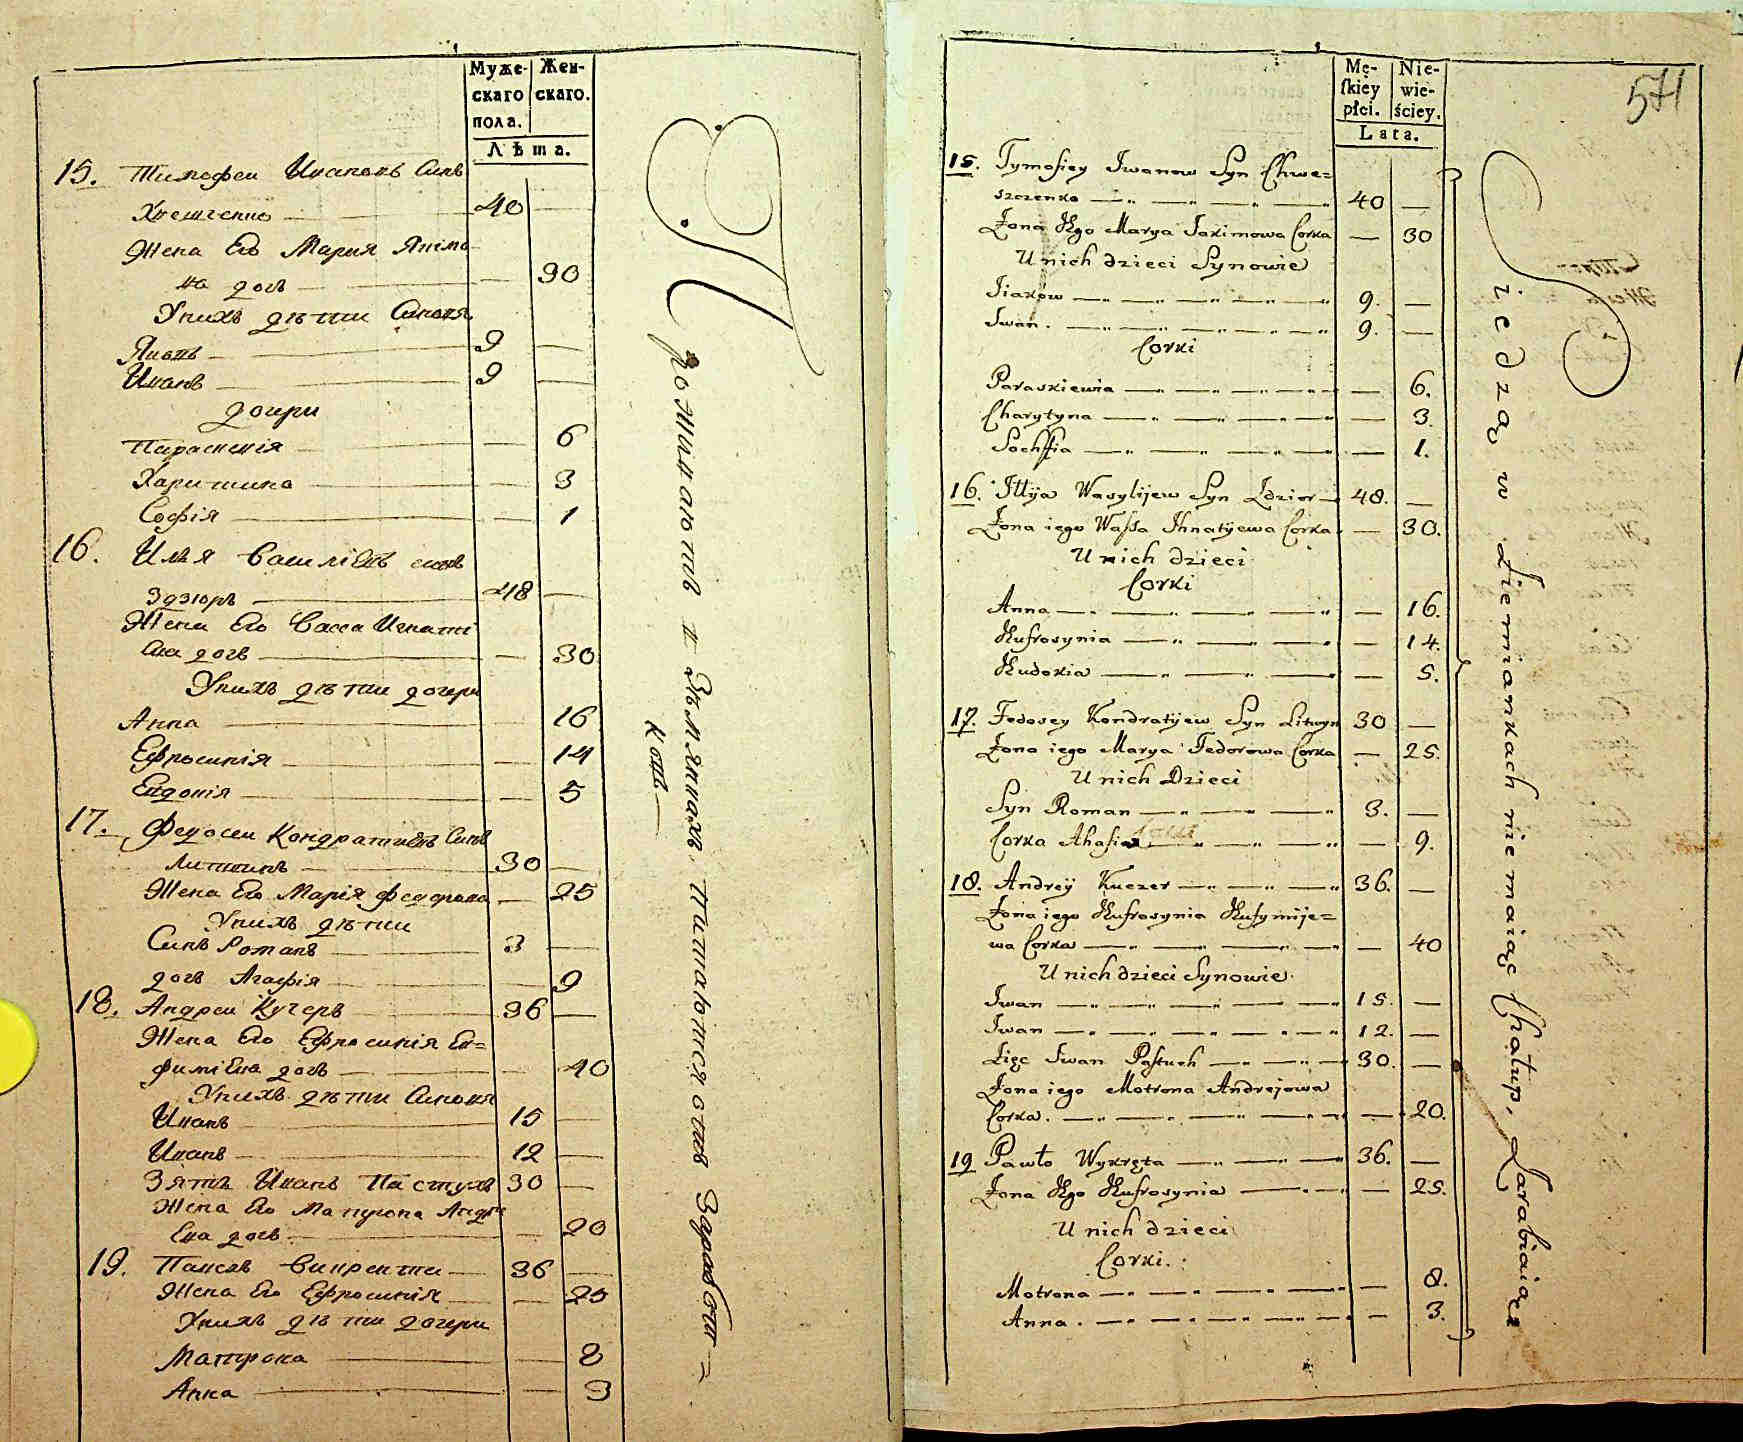 Муже-
скаго
пола.
Жен-
скаго.
Лѣта.
15. Тимофеи Ивановъ Синъ
Хвещенко 40
Жена Его Мария Якимо-
ва дочь 30
Унихъ дѣти Синовя
Яковъ 9
Иванъ 9
дочери
Параскевія 6
Харитина 3
Софія 1
16. Илья Василіевъ синъ
Здзюръ 48
Жена Его Васса Игнаті
Ева дочь 30
Унихъ дѣти дочери
Анна 16
Ефросинія 14
Евдокія 5
17. Федосеи Кондратиевъ Синъ
Литвинъ 30
Жена Его Марія Федорова 25
Унихъ дѣти
Синъ Романъ 3
дочь Агафія 9
18. Андреи Кучеръ 36
Жена Его Ефросинія Ев=
фиміева дочь 40
Унихъ дѣти Синовя
Иванъ 15
Иванъ 12
Зять Иванъ Пастухъ 30
Жена Его Матрона Андре
Ева дочь 20
19. Павелъ Викрента 36
Жена Его Ефросинія 25
Унихъ дѣти дочери
Матрона 8
Анна 3
Проживаютъ в Зѣмлянкахъ питаются отъ Заработ=
ковъ
571
Mę-
skiey
płci.
Nie-
wie-
ściey.
Lata.
15. Tymofiey Iwanow Syn Chwe=
szczenko 40 —
Żona Jego Marya Jakimowa Corka — 30
U nich dzieci Synowie
Jiakow 9. —
Iwan. 9. —
Corki
Paraskiewia — 6.
Charytyna — 3.
Sochffia — 1.
16. Illija Wasylijew Syn Zdzior 48. —
Żona iego Wassa Ihnatijewa Corka — 30.
U nich dzieci
Corki
Anna — 16.
Eufrosynia — 14.
Eudokia — 5.
17. Fedosey Kondratijew Syn Litwyn 30 —
Żona iego Marya Fedorowa Corka — 25.
U nich Dzieci
Syn Roman 3. —
Corka Ahafia — 9.
18. Andrey Kuczer 36. —
Żona iego Eufrosynia Eufymije=
wa Corka — 40
U nich dzieci Synowie
Iwan 15. —
Iwan 12. —
Zięc Iwan Pastuch 30. —
Żona iego Motrona Andrejowa
Corka. — 20.
19 Pawło Wykręta 36. —
Żona Jego Eufrosynia — 25.
U nich dzieci
Corki.
Motrona — 8.
Anna. — 3.
Siedzą w Ziemiankach nie maiąc Chałup, Zarabiaiąc